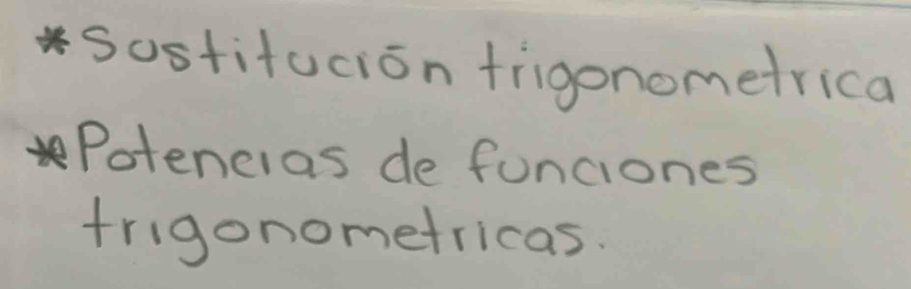 * Sustitución trigonometrica
* Potencias de funciones
trigonometricas.